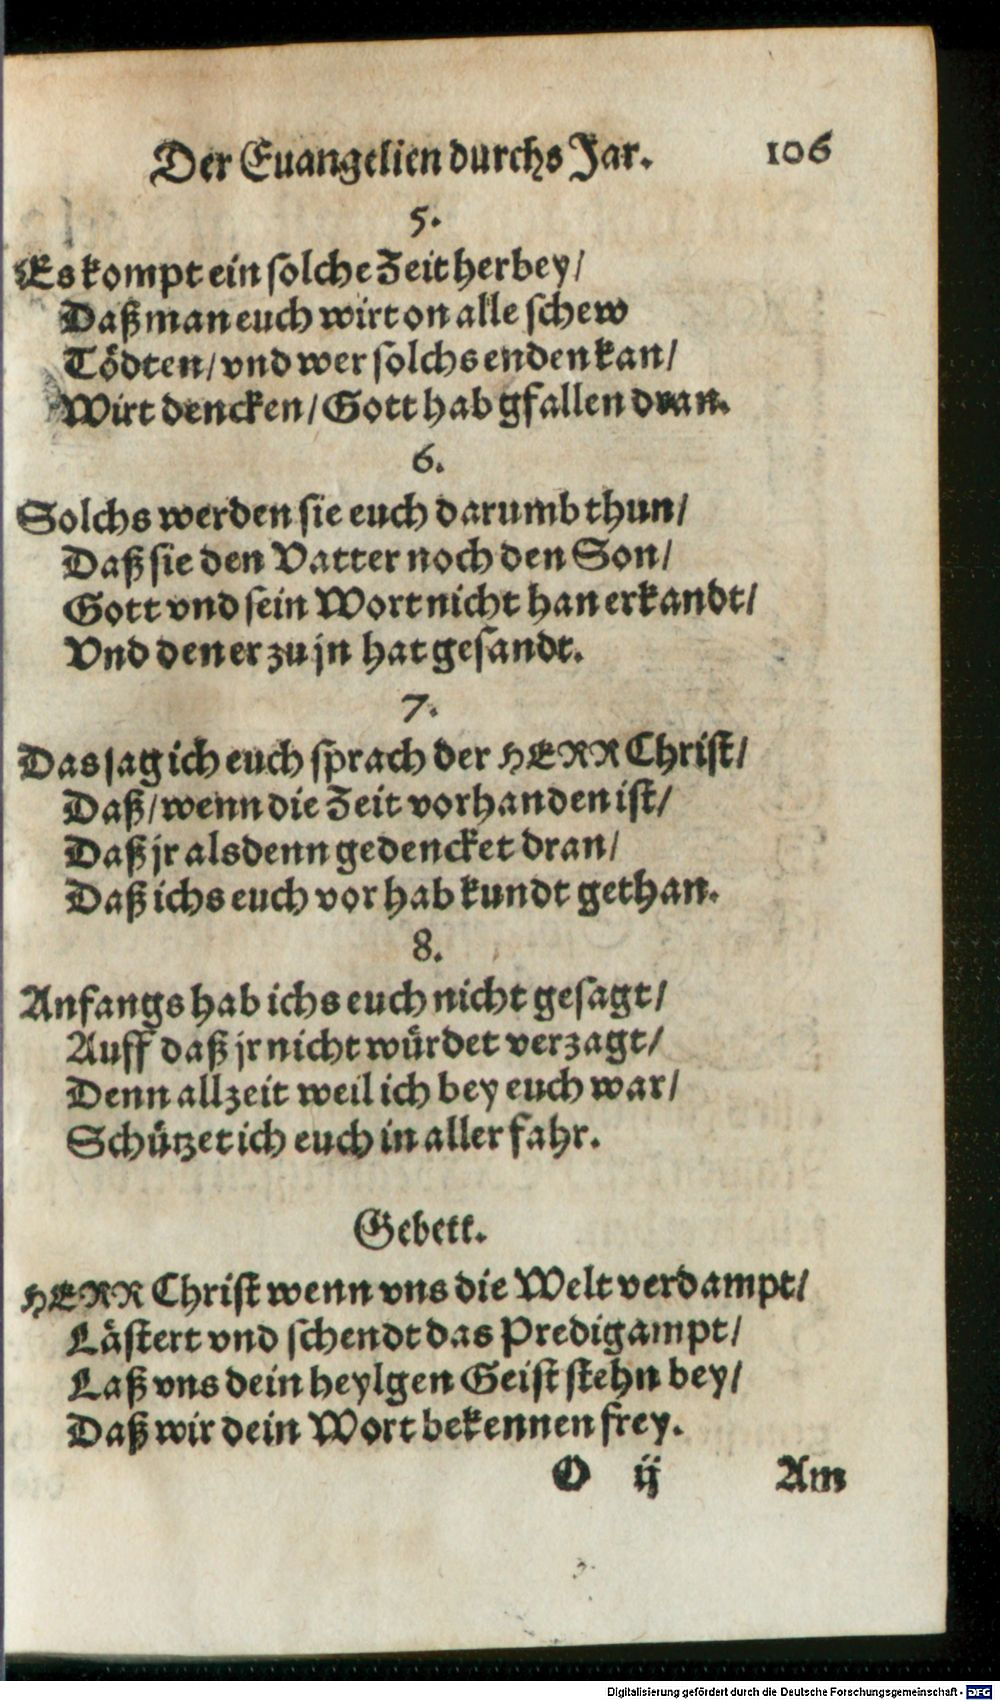 Der Euangelien durchs Jar. 106
5.
Es kompt ein solche Zeit herbey/
Daß man euch wirt on alle schew
Tödten/ vnd wer solchs enden kan/
Wirt dencken/ Gott hab gfallen dran.
6.
Solchs werden sie euch darumb thun/
Daß sie den Vatter noch den Son/
Gott vnd sein Wort nicht han erkandt/
Vnd den er zu jn hat gesandt.
7.
Das sag ich euch sprach der HERR Christ/
Daß/ wenn die Zeit vorhanden ist/
Daß jr alsdenn gedencket dran/
Daß ichs euch vor hab kundt gethan.
8.
Anfangs hab ichs euch nicht gesagt/
Auff daß jr nicht würdet verzagt/
Denn allzeit weil ich bey euch war/
Schützet ich euch in aller fahr.
Gebett.
HERR Christ wenn vns die Welt verdampt/
Lästert vnd schendt das Predigampt/
Laß vns dein heylgen Geist stehn bey/
Daß wir dein Wort bekennen frey.
O ij Am
Digitalisierung gefördert durch die Deutsche Forschungsgemeinschaft - DFG